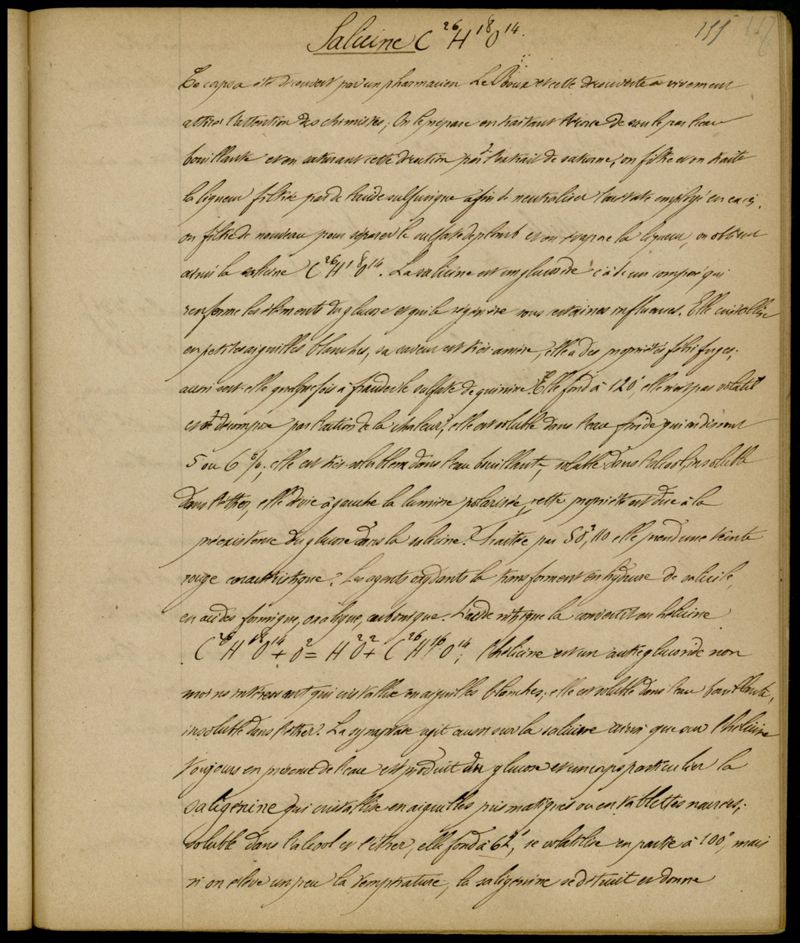 Salicine C²⁶H¹⁸O¹⁴.
155
Ce corps a été découvert par un pharmacien Le Roux et cette découverte a vivement
attiré l'attention des chimistes; On le prépare en traitant l'écorce de saule par l'eau
bouillante et en saturant cette décoction par l'extrait de saturne; on filtre et on traite
la liqueur filtrée par de l'acide sulfurique afin de neutraliser l'acétate employé en excès.
on filtre de nouveau pour séparer le sulfate de plomb et on évapore la liqueur, on obtient
ainsi la salicine C²⁶H¹⁸O¹⁴. La salicine est un glucoside c'à d. un composé qui
renferme les éléments du glucose et qui le régénère sous certaines influences. Elle cristallise
en petites aiguilles blanches, sa saveur est très amère, elle a des propriétés fébrifuges;
aussi sert-elle quelquefois à frauder le sulfate de quinine. Elle fond à 120°, elle n'est pas volatile
est décomposée par l'action de la chaleur, elle est soluble dans l'eau froide qui en dissout
5 ou 6 %, elle est très soluble dans l'eau bouillante, soluble dans l'alcool, insoluble
dans l'éther, elle dévie à gauche la lumière polarisée, cette propriété est due à la
préexistence du glucose dans la salicine. Traitée par SO³,HO elle prend une teinte
rouge caractéristique. Les agents oxydants la transforment en hydrure de salicile,
en acides formique, oxalique, carbonique. L'acide nitrique la convertit en hélicine
C²⁶H¹⁸O¹⁴ + O² = H²O² + C²⁶H¹⁶O¹⁴; l'hélicine est un autre glucoside non
moins intéressant qui cristallise en aiguilles blanches; elle est soluble dans l'eau bouillante,
insoluble dans l'éther. La synaptase agit aussi sur la salicine ainsi que sur l'hélicine
Toujours en présence de l'eau est produit du glucose et un corps particulier la
saligénine qui cristallise en aiguilles prismatiques ou en tablettes nacrées;
soluble dans l'alcool et l'éther, elle fond à 82°, se volatilise en partie à 100°, mais
si on élève un peu la température, la saligénine se détruit et donne